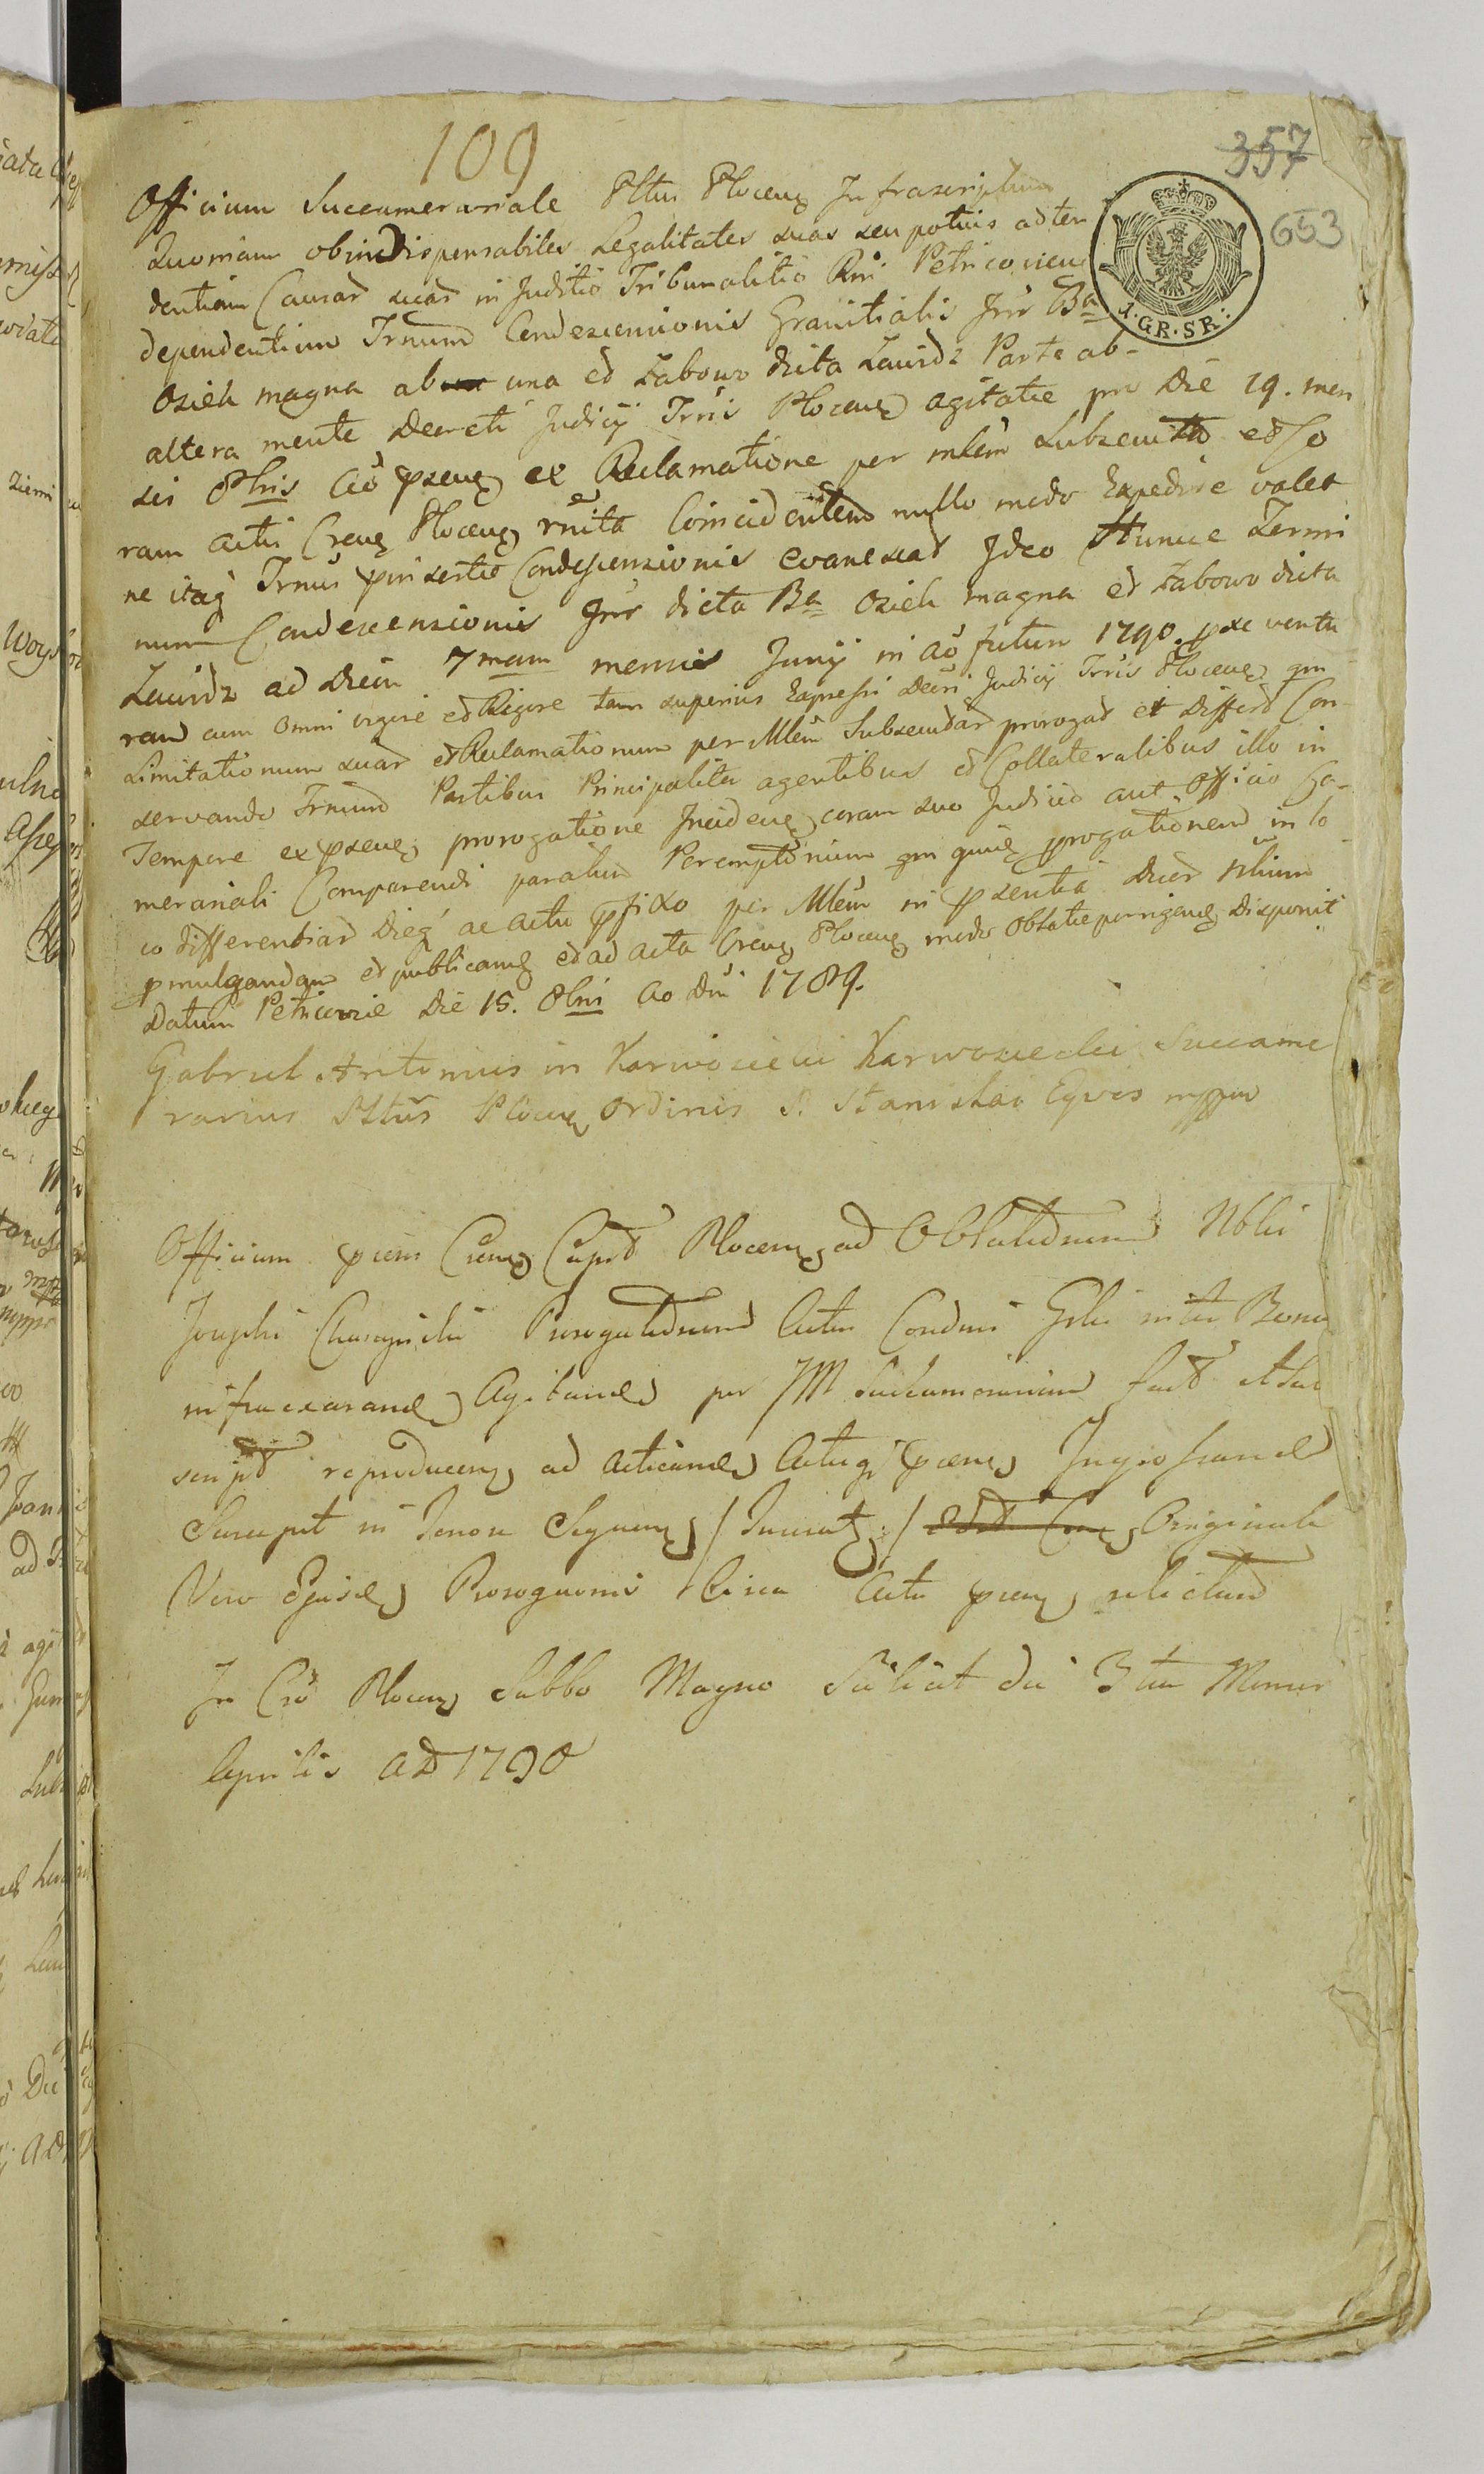 109
357
653
Officium Succamerariale Pltus Plocens Infrascriptum
Quoniam ob indispensabiles Legalitates suas seu potius adten
dentiam Causar suar in Juditio Tribunalitio Rni Petricoviens
dependentium Trnum Condescensionis Granitialis Intr Ba
Osiek magna ab una et Zabowo dicta Zawidz Parte ab
altera mente Decreti Judicij Trris Plocens agitatae pro Die 19. men
sis 8bris Ao psens ex Reclamatione per mlem Subsecuta et Co
ram actis Crens Plocens Coincidentem nullo modo Expedire valet
ne itaq Trnus Condescensionis evanescat Ideo Hunce Termi
num Condescensionis Intr dicta Ba Osiek magna et Zabowo dicta
Zawidz ad Diem 7mam mensis Junij in Ao futuro 1790. pxe ventu
rum cum omni vigore et Rigore tam superius Expressi Decri Judicij Trris Plocens qm
Limitationum suar et Reclamationum per Mlem Subsecutar prorogat et Differt Con
servando Trnum Partibus Principaliter agentibus et Collateralibus illo in
Tempore ex psens prorogatione Incidens coram suo Judicio aut Officio Ca-
merariali Comparendi paratum Peremptorium progationem in lo
co differentiar Dieq ac actu pfixo per Mlem in psentia
pmulgandam et publicand et ad acta Crens Plocens modo Oblatae porrigend Disponit
Datum Petricoviae Die 15. 8bris Ao Dni 1789.
Gabriel Antonius in Karwosieki Karwosiecki Succame
rarius Pltus Plocens Ordinis S. Stanislai Eques mppa
Officium psens Crens Capit Plocens ad Oblationem Nblis
Josephi Prorogationem Actus Condnis Glis inter Bona
infraexarand Agitand per JM Succamerarium fact et Sub
script reproducens ad Acticand Actisq psens Ingrossand
Suscepit in Tenore Sequens / Inserat: / Originale
Vero Ejusd Prorogaonis Circa Acta psens relictum
In Cro Plocens Sabbo Magno Scilicet die 3tia Mensis
Aprilis AD 1790
J·GR·SR·